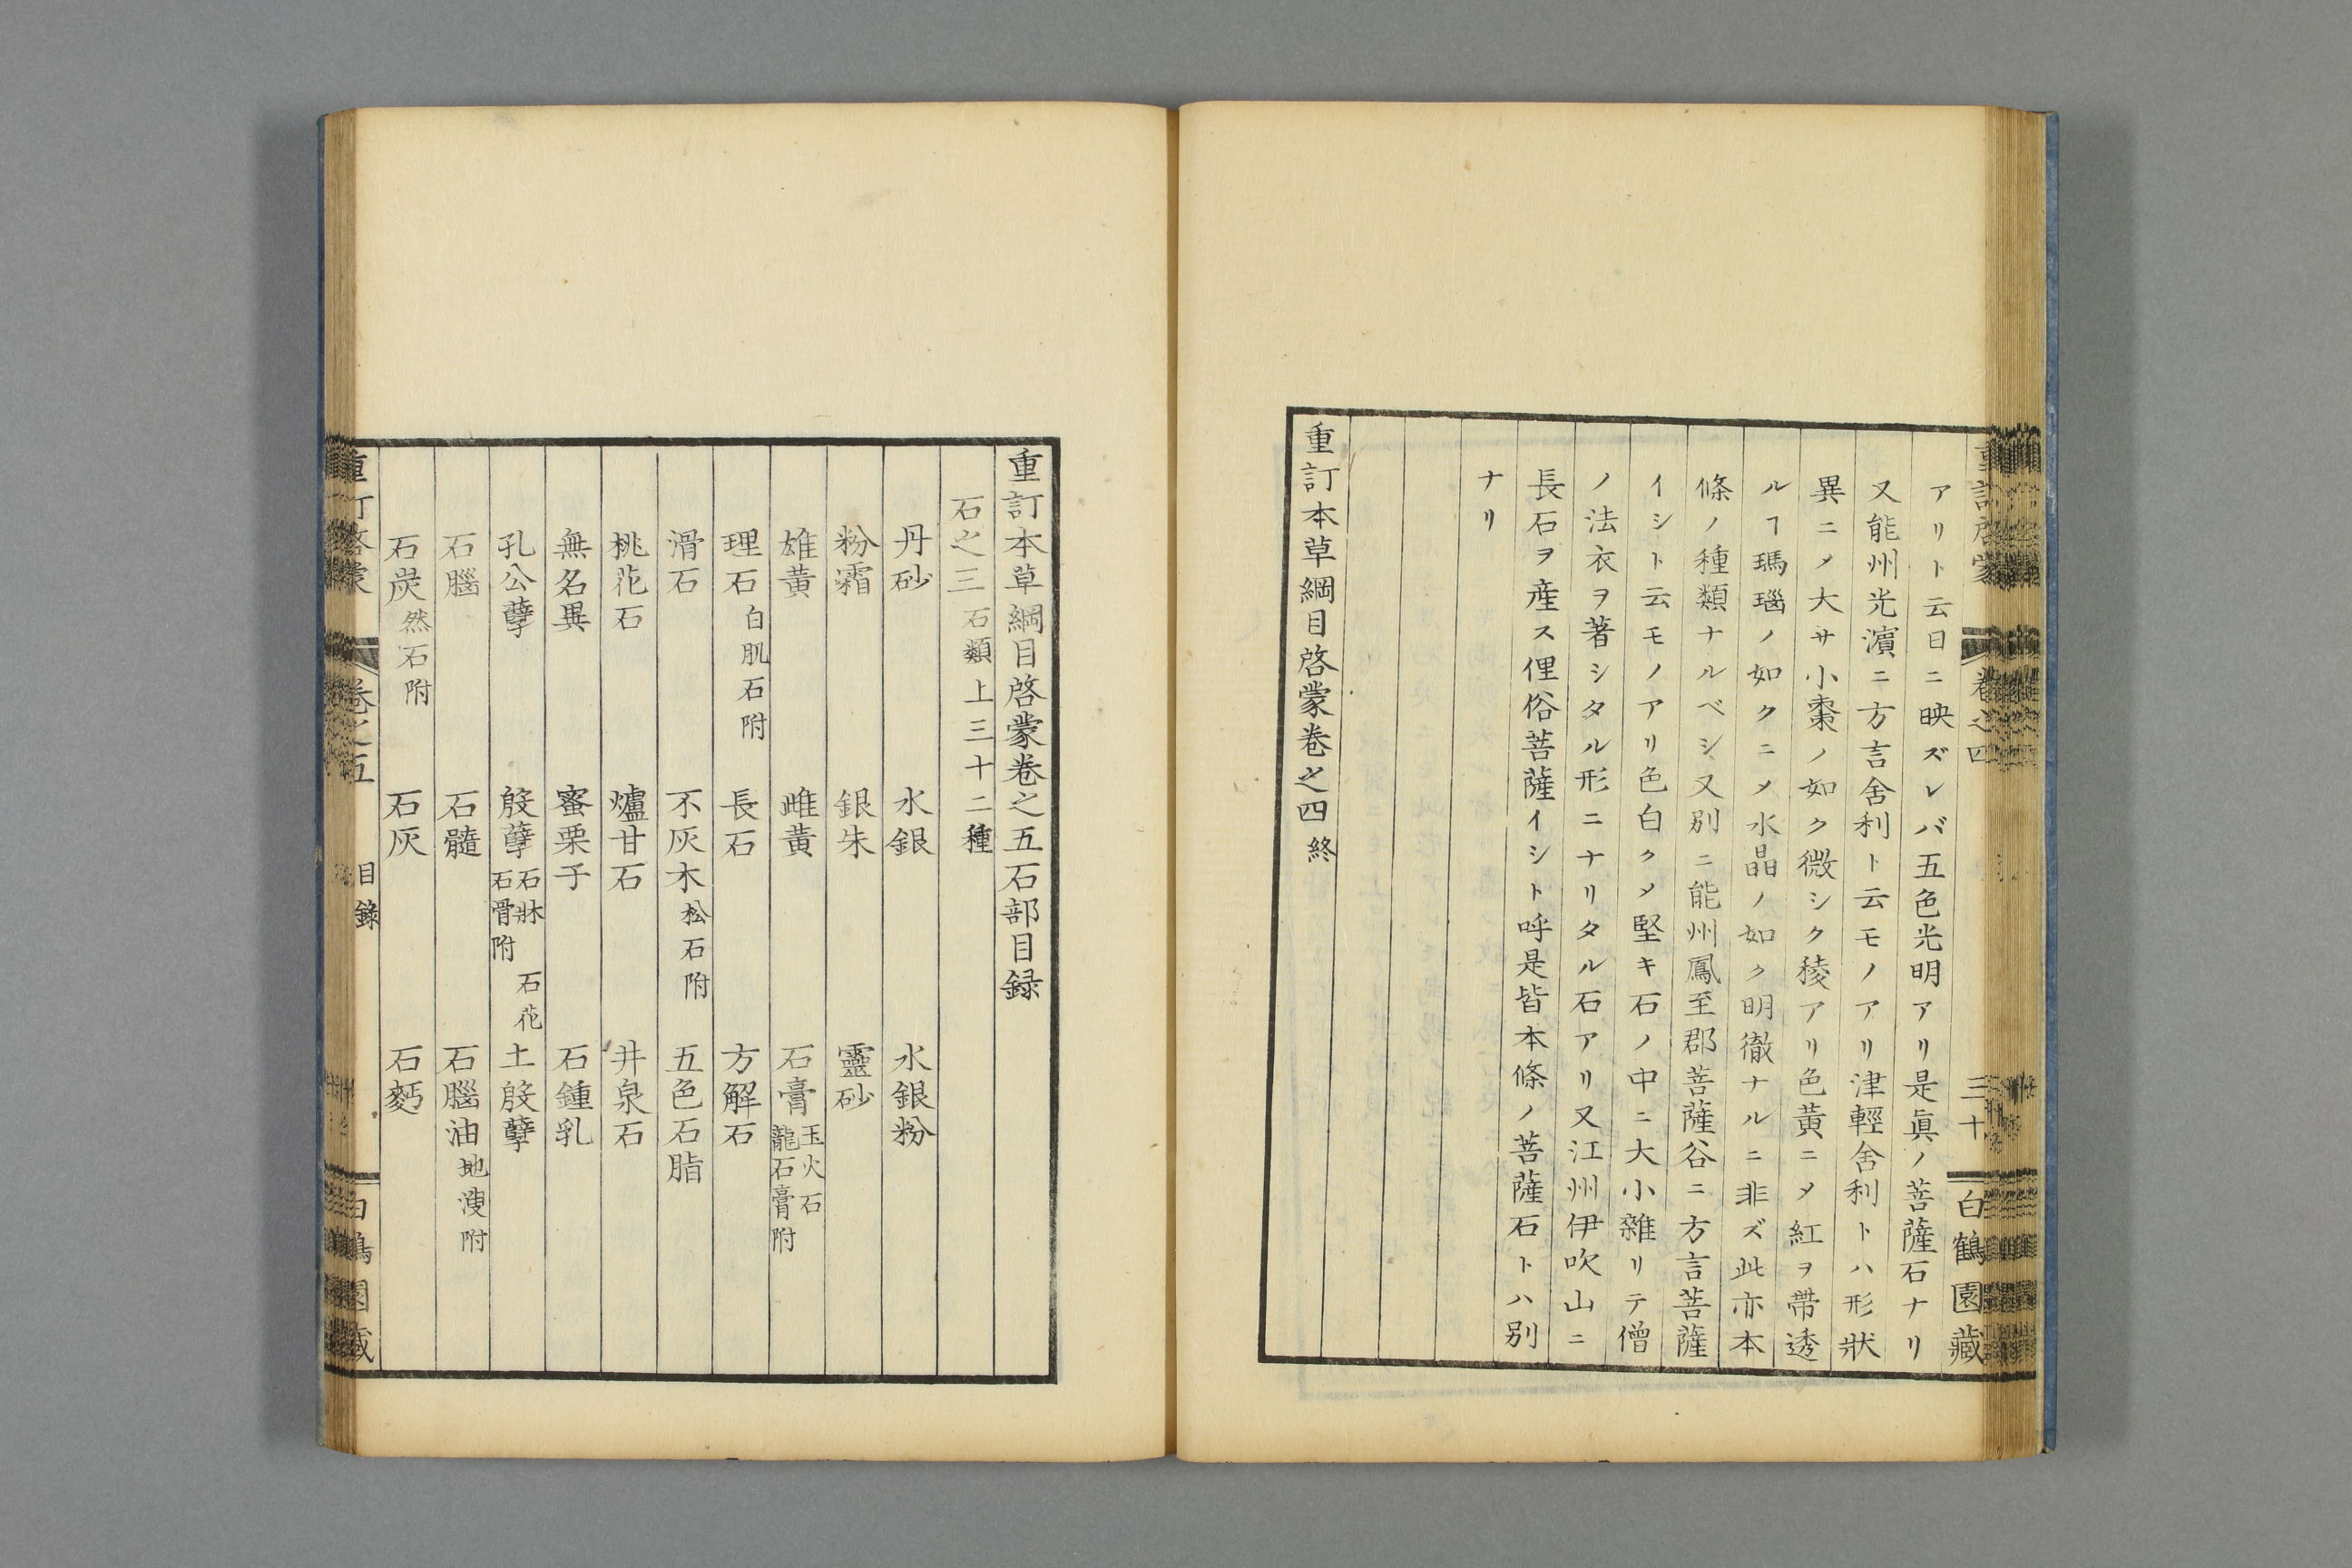 アリト云日ニ映ズレバ五色光明アリ是眞ノ菩薩石ナリ
又能州光濵ニ方言舍利ト云モノアリ津輕舍利トハ形狀
異ニメ大サ小棗ノ如ク微シク稜アリ色黃ニメ紅ヲ帶透
ルヿ瑪瑙ノ如クニメ水晶ノ如ク明徹ナルニ非ズ此亦本
條ノ種類ナルベシ又別ニ能州鳳至郡菩薩谷ニ方言菩薩
イシト云モノアリ色白クメ堅キ石ノ中ニ大小雜リテ僧
ノ法衣ヲ著シタル形ニナリタル石アリ又江州伊吹山ニ
長石ヲ産ス俚俗菩薩イシト呼是皆本條ノ菩薩石トハ別
ナリ
重訂本草綱目啓蒙卷之四 終
重訂啓蒙 卷之四 三十 白鶴園藏
重訂本草綱目啓蒙卷之五石部目録
石之三 石類上三十二種
丹砂 水銀 水銀粉
粉霜 銀朱 靈砂
雄黃 雌黃 石膏 玉火石 龍石膏附
理石 白肌石附 長石 方解石
滑石 不灰木 松石附 五色石脂
桃花石 爐甘石 井泉石
無名異 蜜栗子 石鍾乳
孔公孽 殷孽 石牀 石花 石骨附 土殷孽
石腦 石髓 石腦油 地溲附
石炭 然石附 石灰 石麪
重訂啓蒙 卷之五 目錄 白鶴園藏